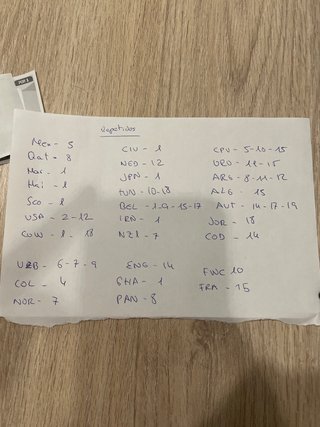 Repetidos
Mex - 5
Qat - 8
Mar - 1
Hai - 1
Sco - 1
USA - 2-12
CUW - 1 - 18
CIV - 1
NED - 12
JPN - 1
TUN - 10-18
BEL - 1-9-15-17
IRN - 1
NZL - 7
CPV - 5-10-15
URU - 14-15
ARG - 8-11-12
ALG - 15
AUT - 14-17-19
JOR - 18
COD - 14
UZB - 6-7-9
COL - 4
NOR - 7
ENG - 14
GHA - 1
PAN - 8
FWC 10
FRA - 15